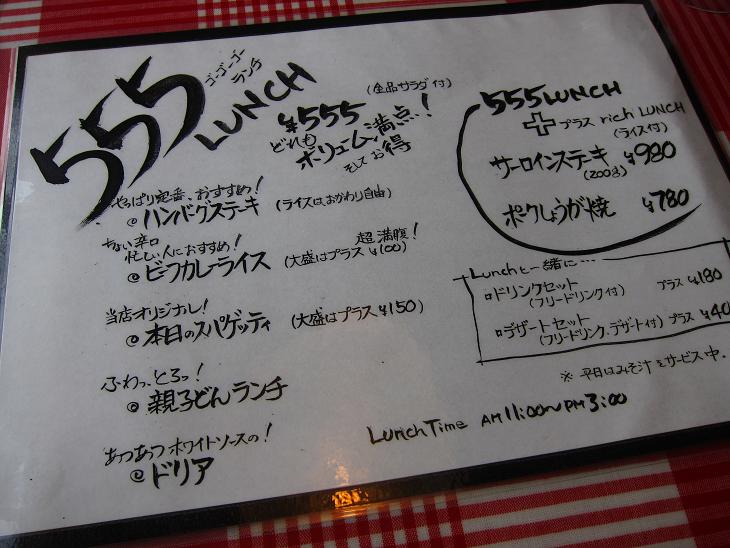 555 LUNCH
ゴーゴーゴー
ランチ
(全品サラダ付)
¥555
どれも
ボリューム満点!
そしてお得
やっぱり定番、おすすめ!
@ハンバーグステーキ (ライスはおかわり自由)
ちょい辛口
忙しい人におすすめ! 超満腹!
@ビーフカレーライス (大盛はプラス¥100)
当店オリジナル!
@本日のスパゲッティ (大盛はプラス¥150)
ふわっ、とろっ!
@親子どんランチ
あつあつホワイトソースの!
@ドリア
555LUNCH
+プラス rich LUNCH
(ライス付)
サーロインステーキ ¥980
(200g)
ポークしょうが焼 ¥780
Lunchと一緒に…
ドリンクセット プラス ¥180
(フリードリンク付)
デザートセット
(フリードリンク、デザート付) プラス ¥40
※平日はみそ汁をサービス中.
Lunch Time AM 11:00~PM 3:00